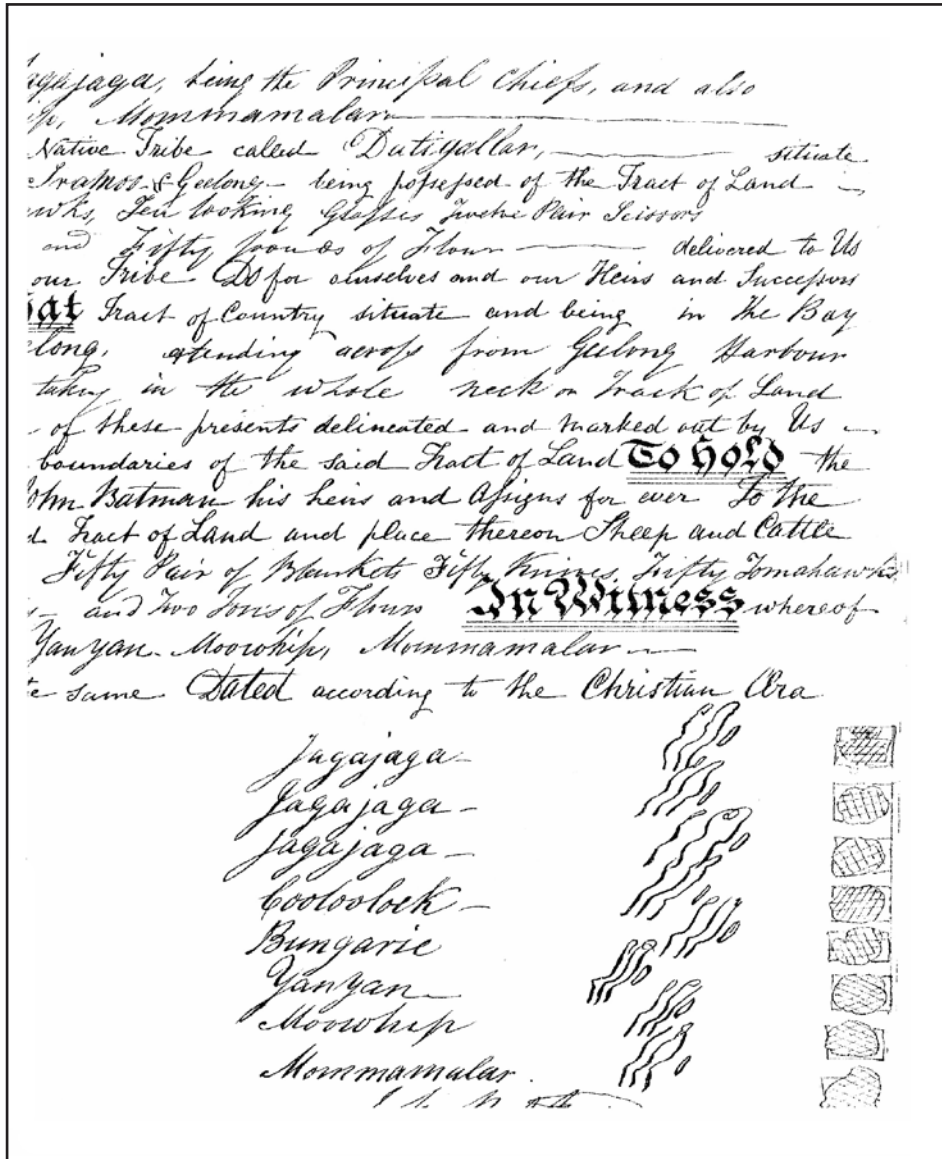 agajaga, being the Principal Chiefs, and also
ip, Mommamalar
Native Tribe called Dutigallar, situate
Iramoo & Geelong being possessed of the Tract of Land
wks, Ten looking Glasses Twelve Pair Scissors
and Fifty pounds of Flour delivered to Us
our Tribe Do for ourselves and our Heirs and Successors
hat Tract of Country situate and being in the Bay
elong, extending across from Geelong Harbour
taking in the whole neck or Track of Land
of these presents delineated and marked out by Us
boundaries of the said Tract of Land To Hold the
John Batman his heirs and Assigns for ever To the
d Tract of Land and place thereon Sheep and Cattle
Fifty Pair of Blankets Fifty Knives, Fifty Tomahawks
and Two Tons of Flour In Witness whereof
Yanyan Moowhip, Mommamalar
e same Dated according to the Christian Æra
Jagajaga
Jagajaga
Jagajaga
Cooloolock
Bungarie
Yanyan
Moowhip
Mommamalar